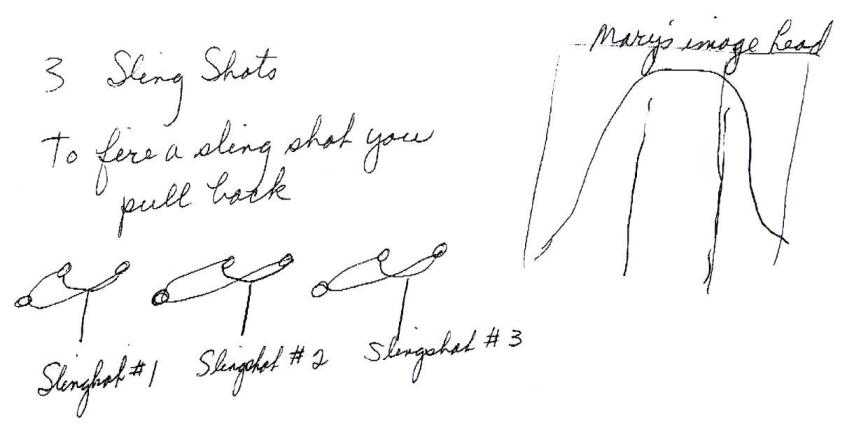 Mary's image head
3 Sling Shots
To fire a sling shot you
pull back
Slinghot #1
Slingshot #2
Slingshot #3